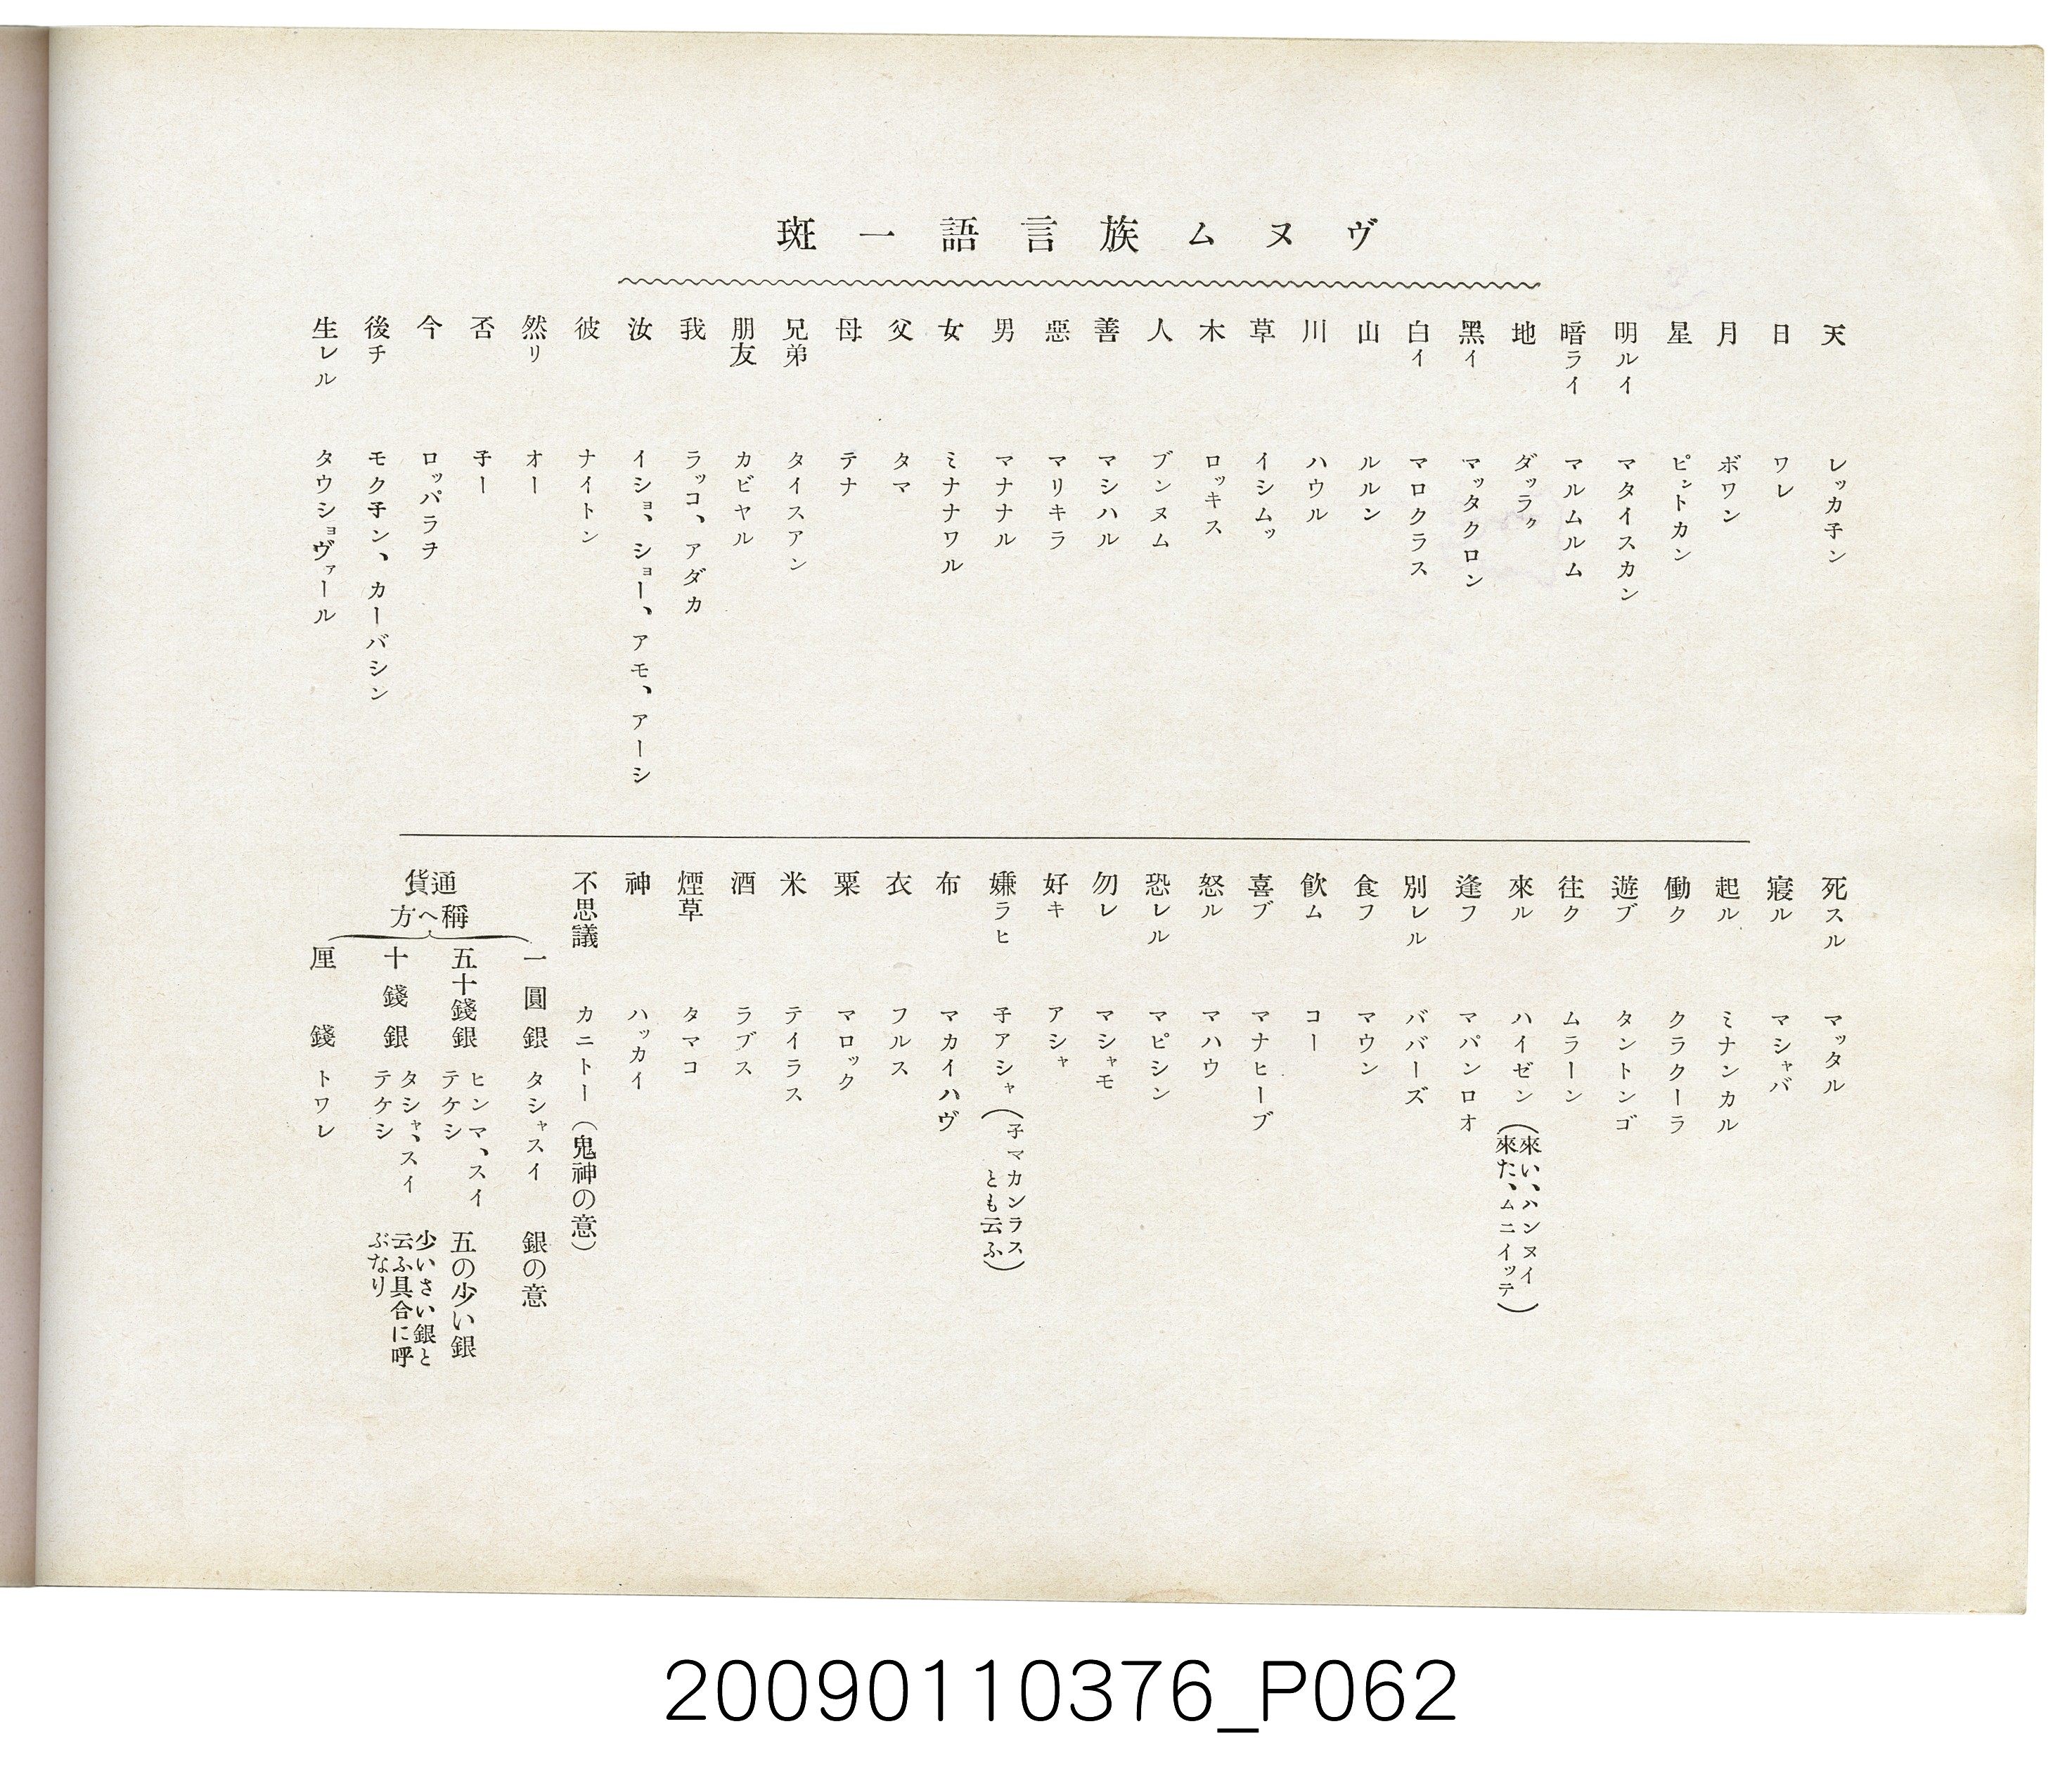 ヴヌム族言語一斑
天 レッカ子ン
日 ワレ
月 ボワン
星 ピットカン
明ルイ マタイスカン
暗ライ マルムルム
地 ダッラㇰ
黑イ マッタクロン
白イ マロクラス
山 ルルン
川 ハウル
草 イシムッ
木 ロッキス
人 ブンヌム
善 マシハル
惡 マリキラ
男 マナナル
女 ミナナワル
父 タマ
母 テナ
兄弟 タイスアン
朋友 カビヤル
我 ラッコ、アダカ
汝 イショ、ショー、アモ、アーシ
彼 ナイトン
然リ オー
否 子ー
今 ロッパラヲ
後チ モク子ン、カーバシン
生レル タウショヴァール
死スル マッタル
寢ル マシャバ
起ル ミナンカル
働ク クラクーラ
遊ブ タントンゴ
往ク ムラーン
來ル ハイゼン(來い、ハンヌイ 來た、ムニイッテ)
逢フ マパンロオ
別レル バハーズ
食フ マウン
飮ム コー
喜ブ マナヒーブ
怒ル マハウ
恐レル マピシン
勿レ マシャモ
好キ アシャ
嫌ラヒ 子アシャ(子マカンラス とも云ふ)
布 マカイハヴ
衣 フルス
粟 マロック
米 テイラス
酒 ラブス
煙草 タマコ
神 ハッカイ
不思議 カニトー(鬼神の意)
通貨稱へ方
一圓銀 タシャスイ 銀の意
五十錢銀 ヒンマ、スイテケシ 五の少い銀
十錢銀 タシャ、スイテケシ 少いさい銀と云ふ具合に呼ぶなり
厘錢 トワレ
20090110376_P062